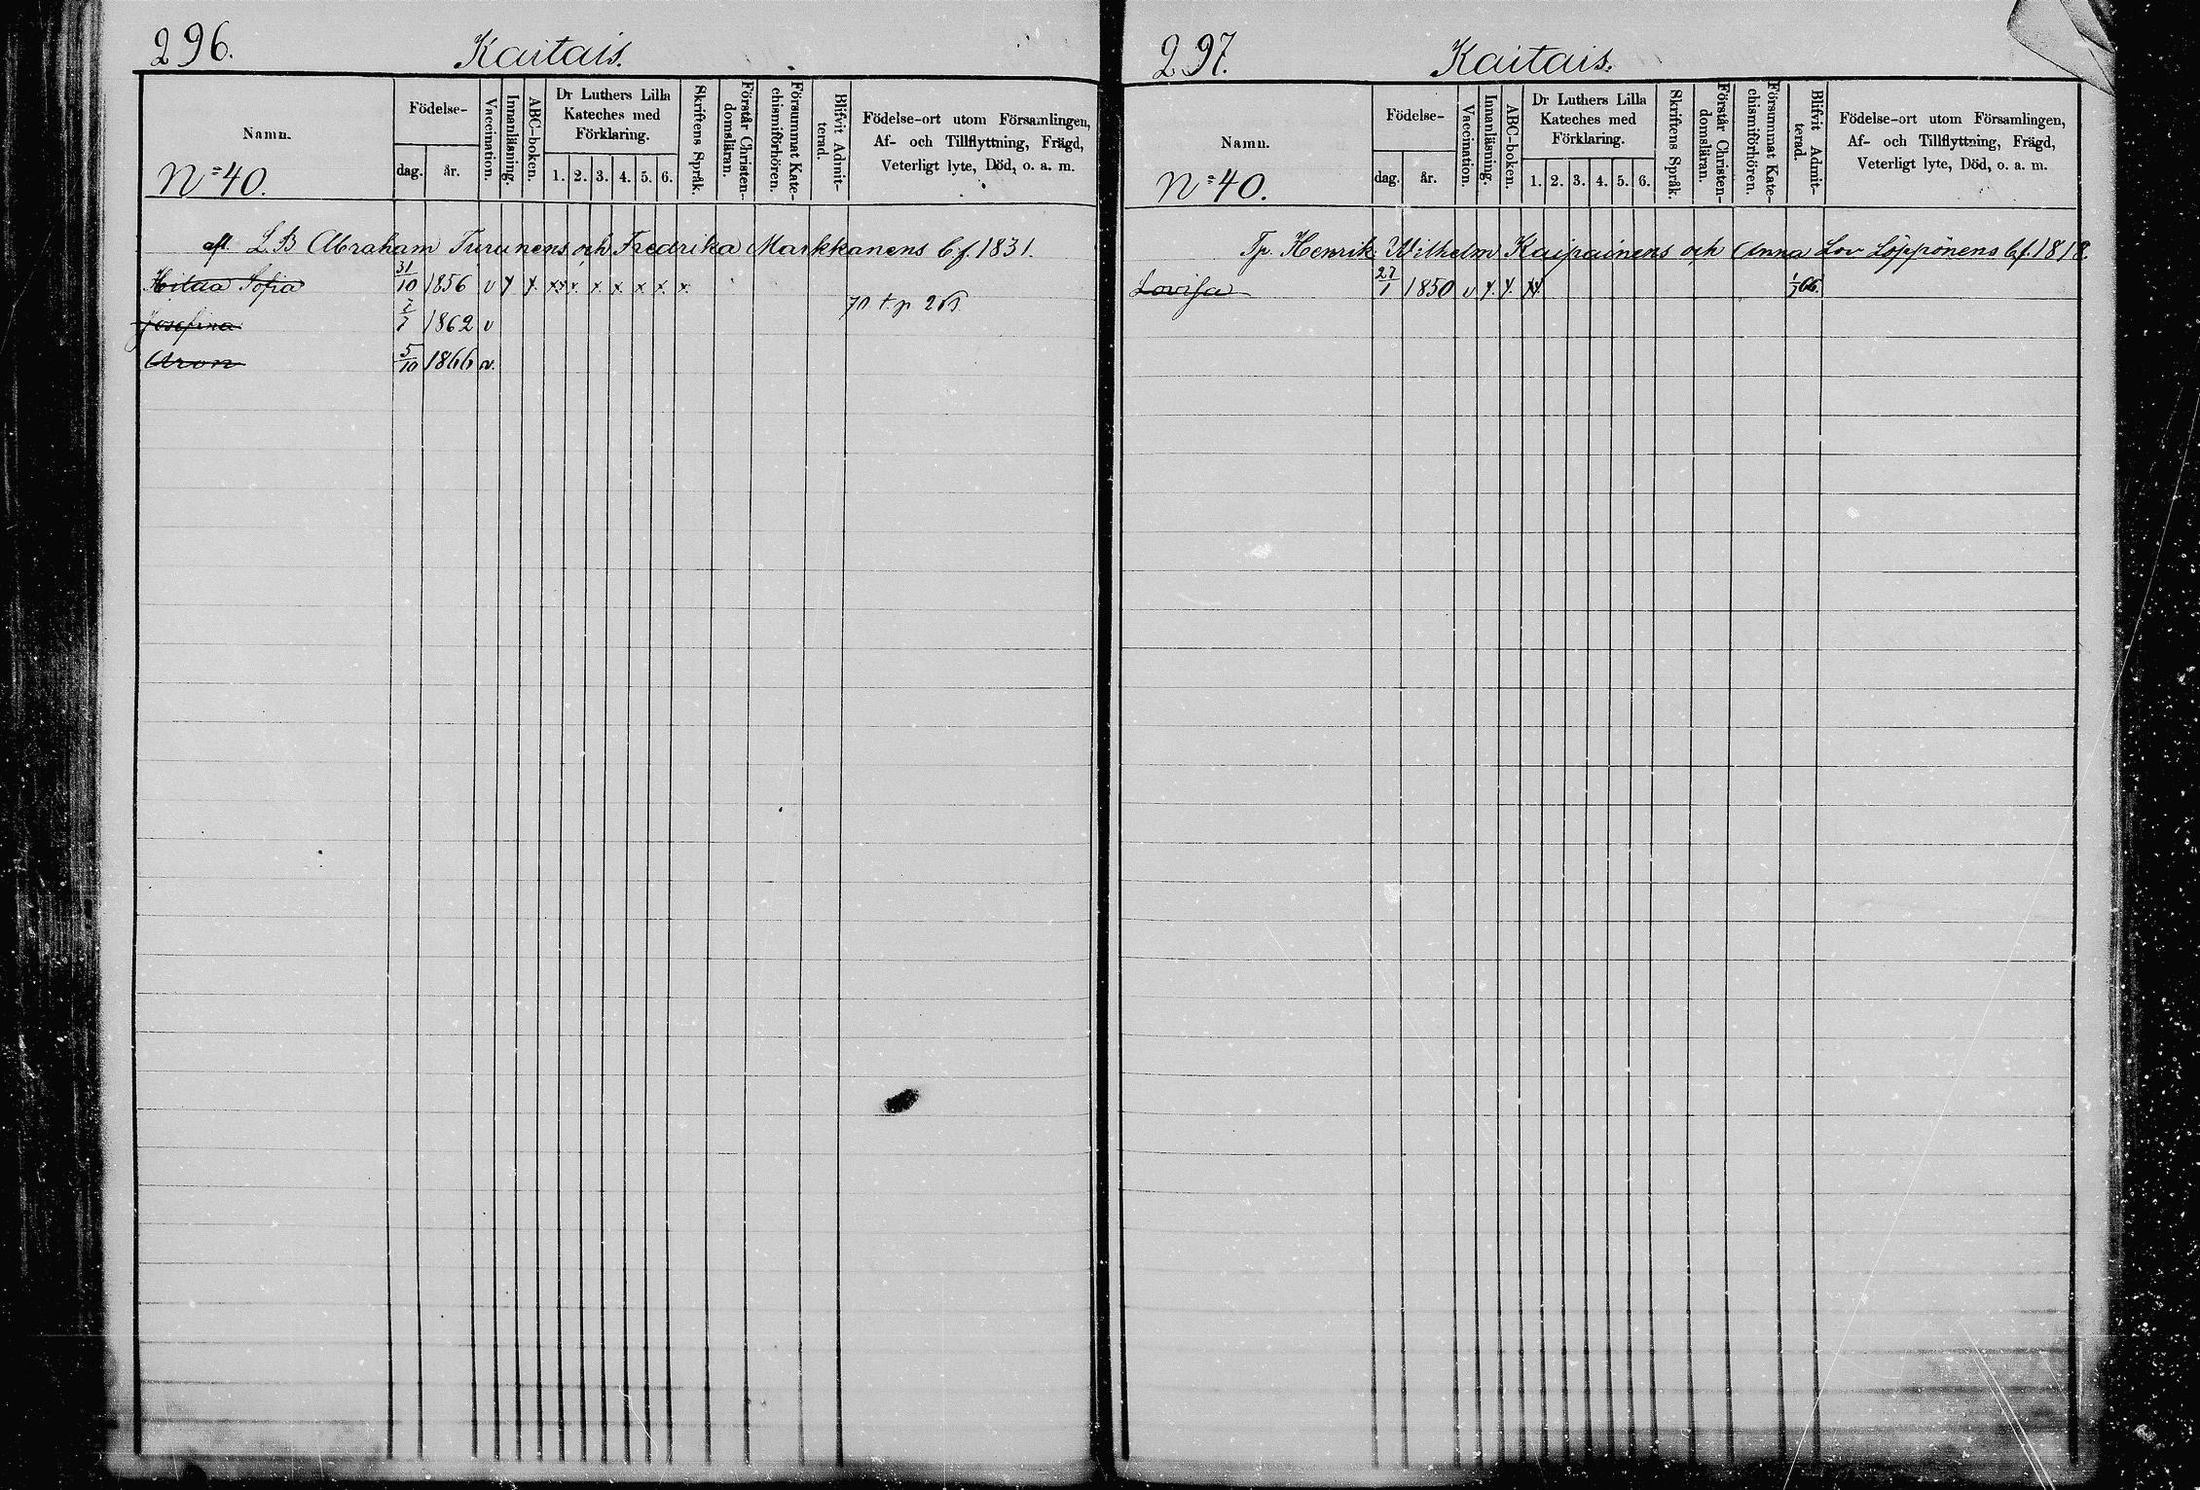 296. Kaitais.
Namn.
N=40.
Födelse-
dag. år.
Vaccination.
Innanläsning.
ABC-boken.
Dr Luthers Lilla
Kateches med
Förklaring.
1. 2. 3. 4. 5. 6.
Skriftens Språk.
Förstår Christen-
domsläran.
Försummat Kate-
chismiförhören.
Blifvit Admit-
terad.
Födelse-ort utom Församlingen,
Af- och Tillflyttning, Frägd,
Veterligt lyte, Död, o. a. m.
afl. L B Abraham Turunens och Fredrika Markkanens b. f. 1831.
Hilda Sofia 31/10 1856 v x x x x x x x x x
70 t. p
Josefina 1862 v
Aron 5/10 1866 v.
297. Kaitais.
Namn.
N=40.
Födelse-
dag. år.
Vaccination.
Innanläsning.
ABC-boken.
Dr Luthers Lilla
Kateches med
Förklaring.
1. 2. 3. 4. 5. 6.
Skriftens Språk.
Förstår Christen-
domsläran.
Försummat Kate-
chismiförhören.
Blifvit Admit-
terad.
Födelse-ort utom Församlingen,
Af- och Tillflyttning, Frägd,
Veterligt lyte, Död, o. a. m.
Tp. Henrik Wilhelm Kaipainens och Anna Lov Löppönens b. f. 1818.
Lovisa 27/1 1850 v x. x. x